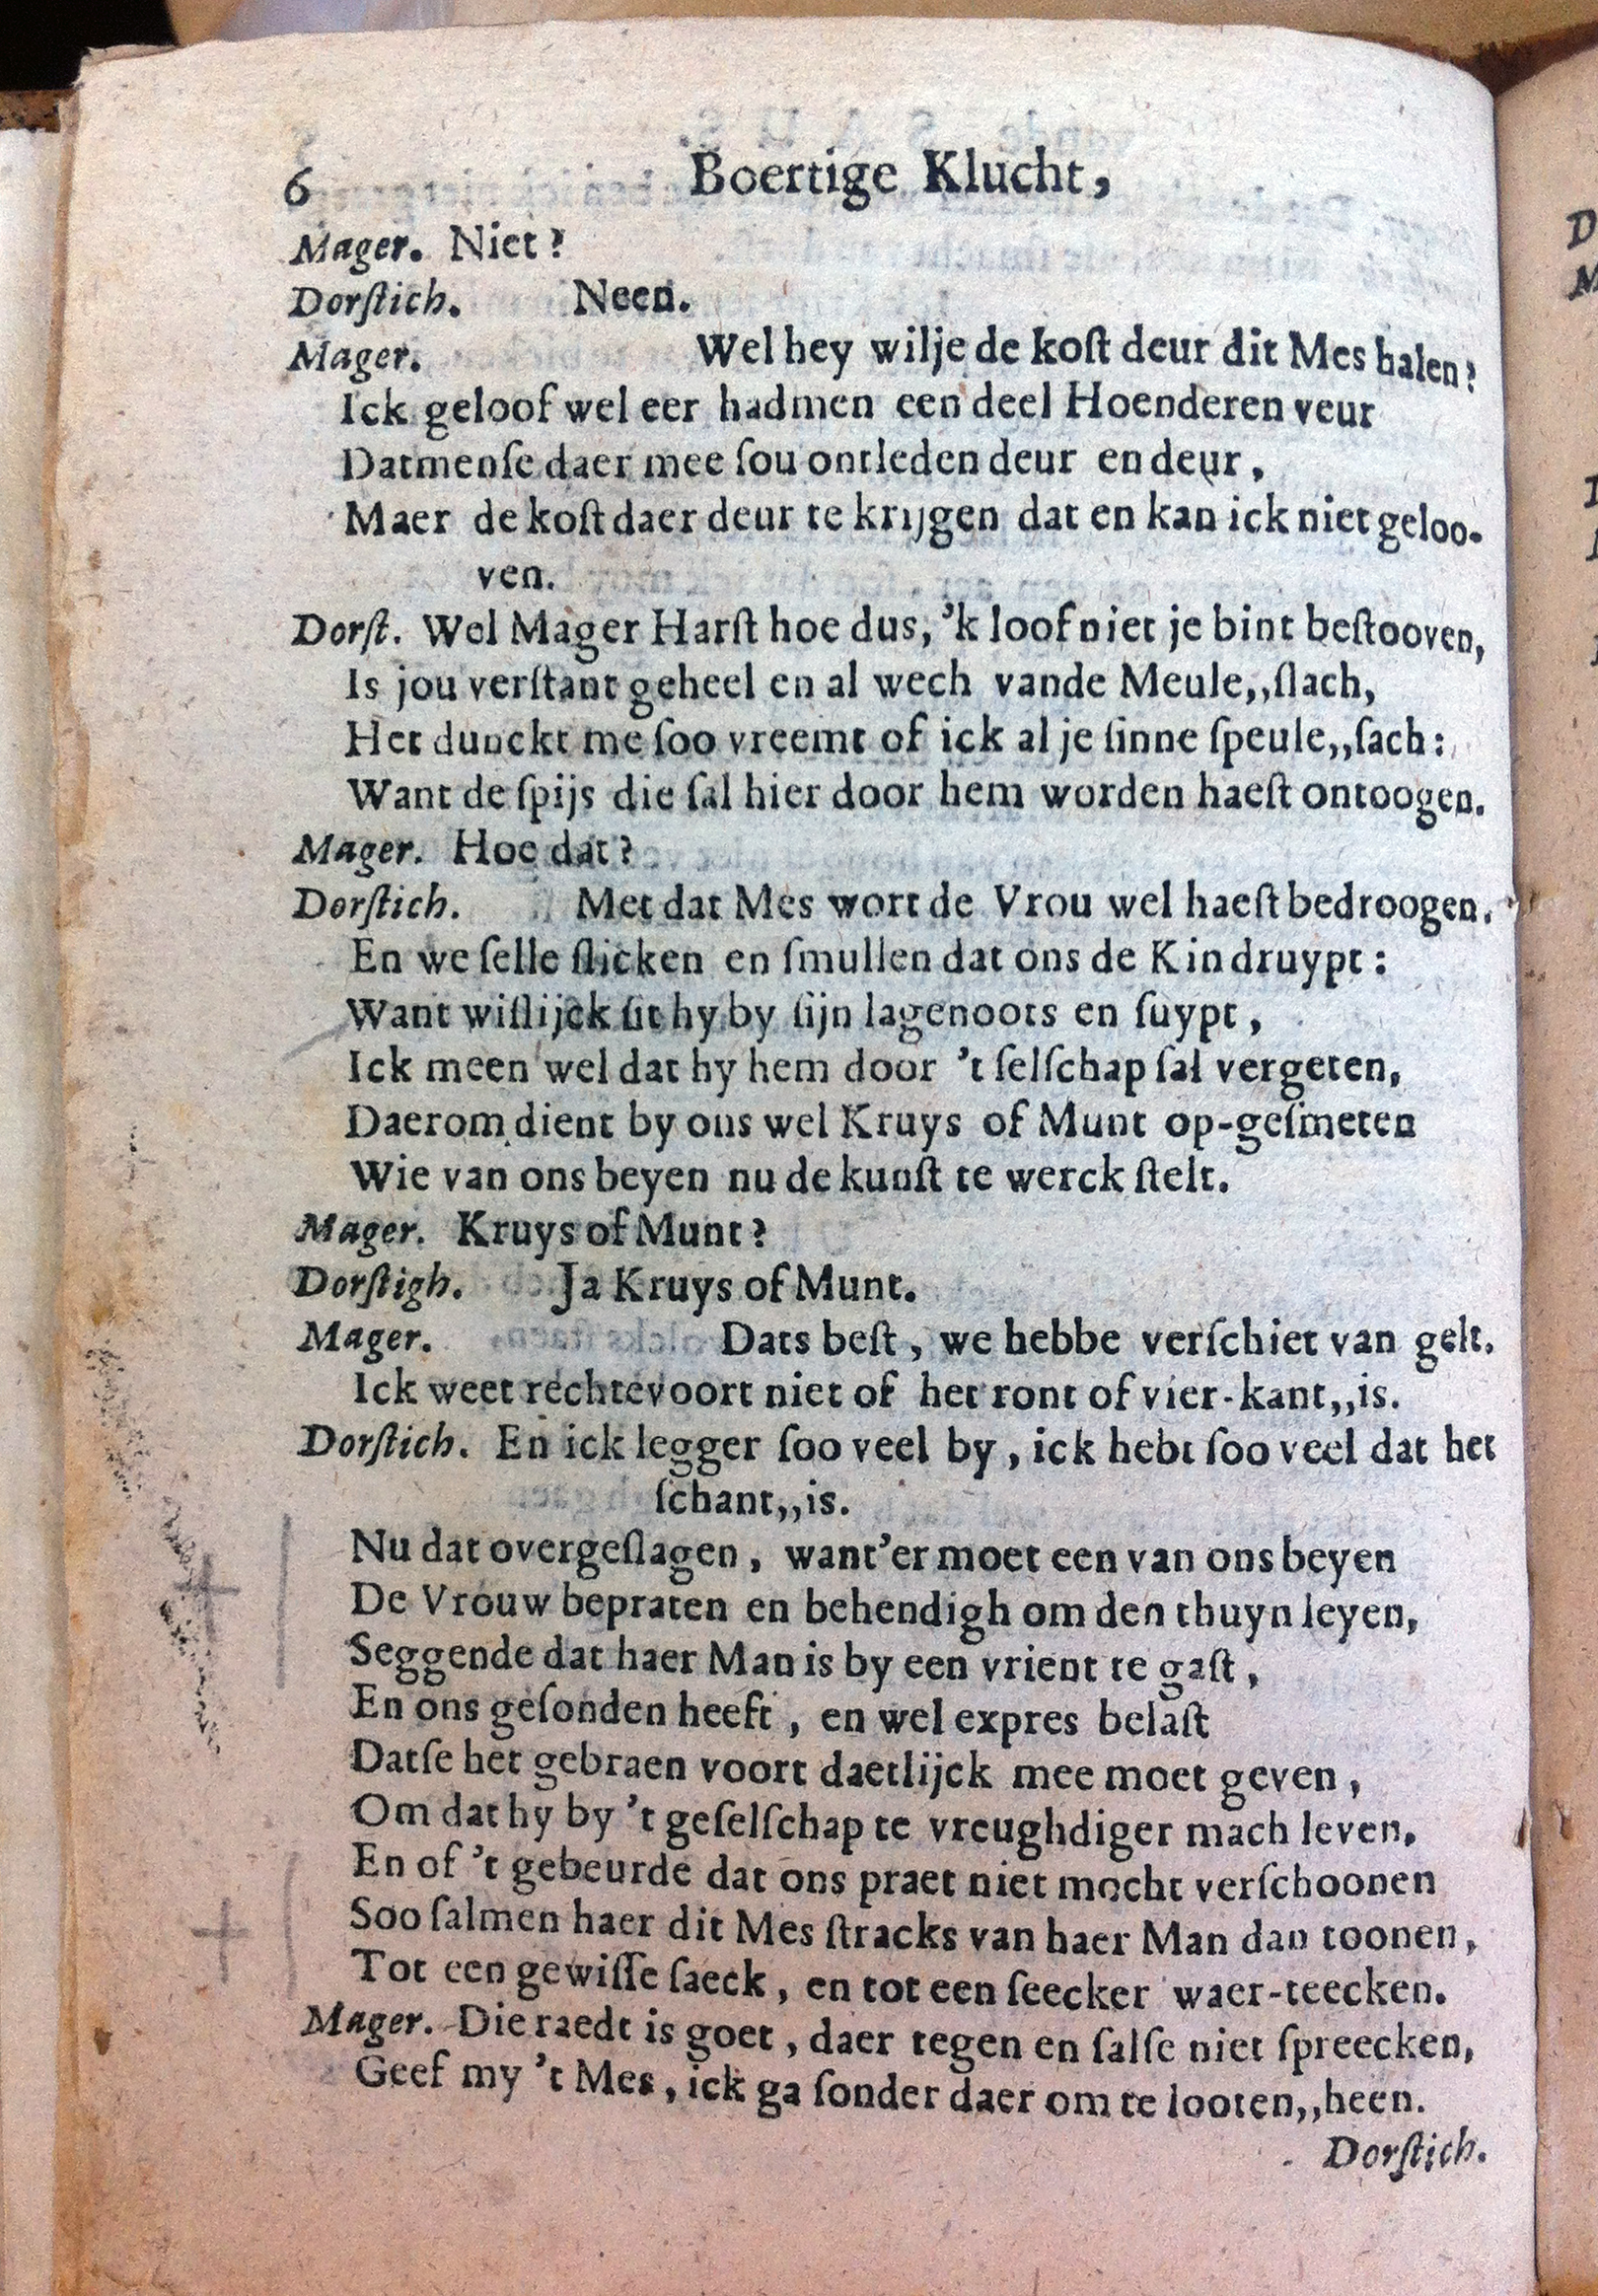 6 Boertige Klucht,
Mager. Niet?
Dorſtich. Neen.
Mager. Wel hey wilje de koſt deur dit Mes halen?
Ick geloof wel eer hadmen een deel Hoenderen veur
Datmenſe daer mee ſou ontleden deur en deur,
Maer de koſt daer deur te krijgen dat en kan ick niet geloo-
ven.
Dorſt. Wel Mager Harſt hoe dus, 'k loof niet je bint beſtooven,
Is jou verſtant geheel en al wech vande Meule,,ſlach,
Het dunckt me ſoo vreemt of ick al je ſinne ſpeule,,ſach:
Want de ſpijs die ſal hier door hem worden haeſt ontoogen.
Mager. Hoe dat?
Dorſtich. Met dat Mes wort de Vrou wel haeſt bedroogen.
En we ſelle ſlicken en ſmullen dat ons de Kin druypt:
Want wiſlijck ſit hy by ſijn lagenoots en ſuypt,
Ick meen wel dat hy hem door 't ſelſchap ſal vergeten,
Daerom dient by ons wel Kruys of Munt op-geſmeten
Wie van ons beyen nu de kunſt te werck ſtelt.
Mager. Kruys of Munt?
Dorſtigh. Ja Kruys of Munt.
Mager. Dats beſt, we hebbe verſchiet van gelt.
Ick weet rechtevoort niet of het ront of vier-kant,,is.
Dorſtich. En ick legger ſoo veel by, ick hebt ſoo veel dat het
ſchant,,is.
Nu dat overgeſlagen, want'er moet een van ons beyen
De Vrouw bepraten en behendigh om den thuyn leyen,
Seggende dat haer Man is by een vrient te gaſt,
En ons geſonden heeft, en wel expres belaſt
Datſe het gebraen voort daetlijck mee moet geven,
Om dat hy by 't geſelſchap te vreughdiger mach leven.
En of 't gebeurde dat ons praet niet mocht verſchoonen
Soo ſalmen haer dit Mes ſtracks van haer Man dan toonen,
Tot een gewiſſe ſaeck, en tot een ſeecker waer-teecken.
Mager. Die raedt is goet, daer tegen en ſalſe niet ſpreecken,
Geef my 't Mes, ick ga ſonder daer om te looten,,heen.
Dorſtich.